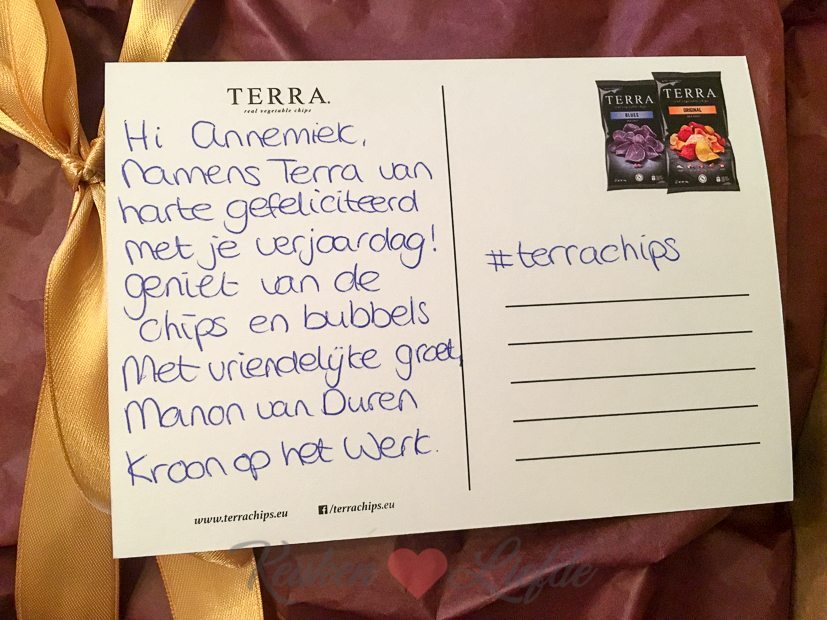 TERRA.
real vegetable chips
Hi Annemiek,
Namens Terra van
harte gefeliciteerd
met je verjaardag!
geniet van de
chips en bubbels
Met vriendelijke groet,
Manon van Duren
Kroon op het Werk.
www.terrachips.eu
/terrachips.eu
TERRA
BLUES
TERRA
ORIGINAL
#terrachips
Keuken Liefde